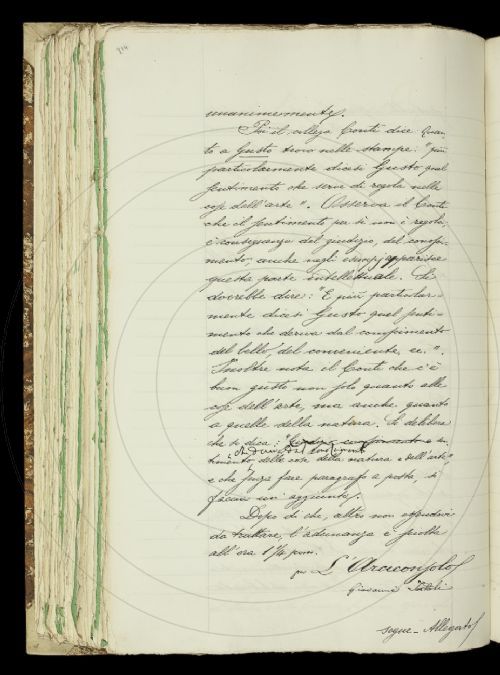 unanimemente.
Poi il collega Conti dice: Quan-
to a Gusto trovo nelle stampe: "più
particolarmente dicesi Gusto quel
sentimento che serve di regola nelle
cose dell'arte". Osserva il Conti
che il sentimento per sé non è regola;
è conseguenza del giudizio, del conosci-
mento, anche negli esempj apparisce
questa parte intellettuale. Si
dovrebbe dire: "E più particolar-
mente dicesi Gusto quel senti-
mento che deriva dal conoscimento
del bello, del conveniente, ec.".
Inoltre nota il Conti che c'è
buon gusto non solo quanto alle
cose dell'arte, ma anche quanto
a quelle della natura. Si delibera
che si dica: "
timento delle cose della natura e dell'arte"
e che "senza fare paragrafo a posta, si
faccia un'aggiunta".
Dopo di che, altro non essendovi
da trattare, l'adunanza è sciolta
all'ora 1 1/4 pom.
L'Arciconsolo
Giovanni
segue - Allegato